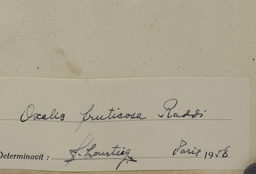 Oxalis fruticosa Raddi
Determinavit : A. Lourteig Paris 1958